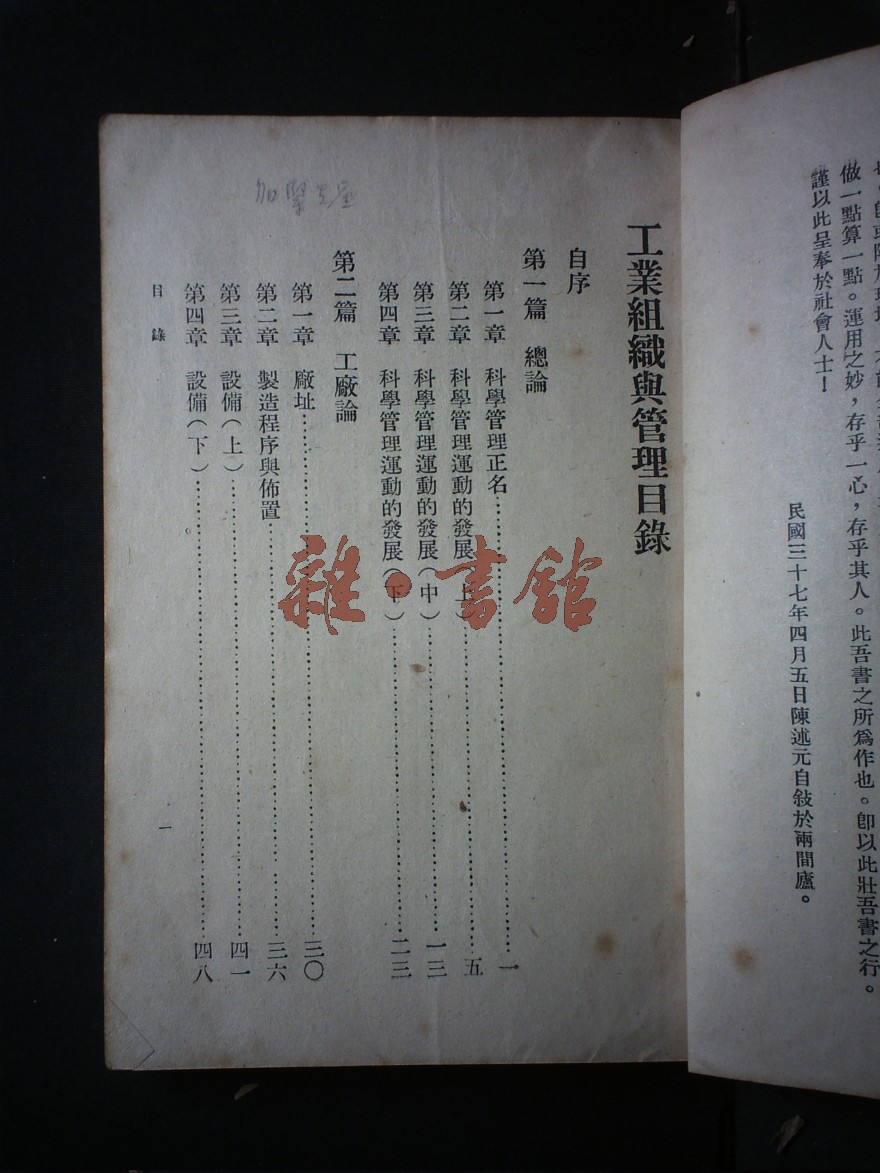 做一點算一點。運用之妙，存乎一心，存乎其人。此吾書之所爲作也。卽以此壯吾書之行。
謹以此呈奉於社會人士！
民國三十七年四月五日陳述元自敍於兩間廬。
工業組織與管理目錄
自序
第一篇 總論
第一章 科學管理正名……一
第二章 科學管理運動的發展（上）……五
第三章 科學管理運動的發展（中）……一三
第四章 科學管理運動的發展（下）……二三
第二篇 工廠論
第一章 廠址……三〇
第二章 製造程序與佈置……三六
第三章 設備（上）……四一
第四章 設備（下）……四八
目錄
一
雜·書館